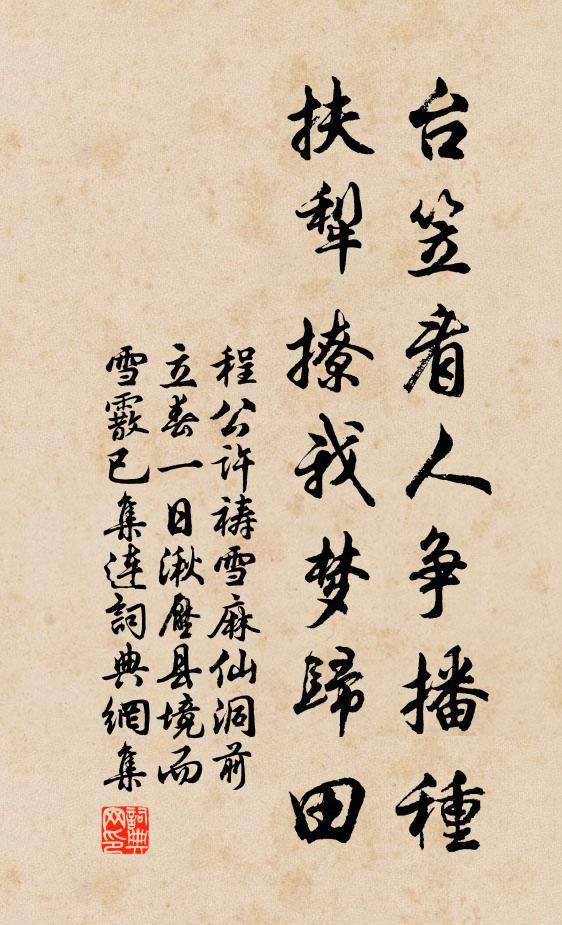 台笠看人争播種
扶犁撩我梦歸田
程公许祷雪麻仙洞前
立春一日湫县境而
雪霰已集連詞典網集
詞典网印